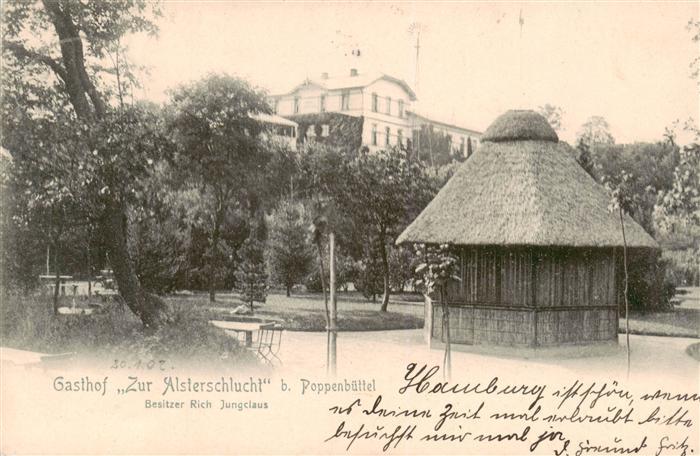 20.9.02.
Gasthof „Zur Alsterschlucht“ b. Poppenbüttel
Besitzer Rich Jungclaus
Hamburg ist schön, wenn
es deine Zeit mal erlaubt bitte
besuchst mir mal ja,
d. Freund Fritz.